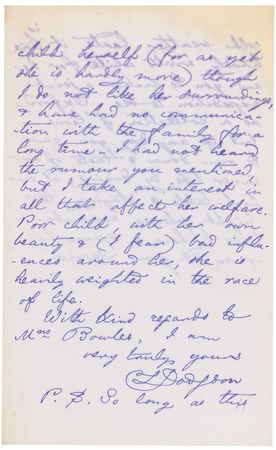 child herself (for as yet
she is hardly more) though
I do not like her surroundings,
& have had no communica-
tion with the family for a
long time. I had not heard
the rumour you mentioned,
but I take an interest in
all that affect her welfare.
Poor child, with her own
beauty & (I fear) bad influ-
-ences around her, she is
heavily weighted in the race
of life.
With kind regards to
Mrs Bowles, I am
very truly yours
CLDodgson
P. S. So long as this